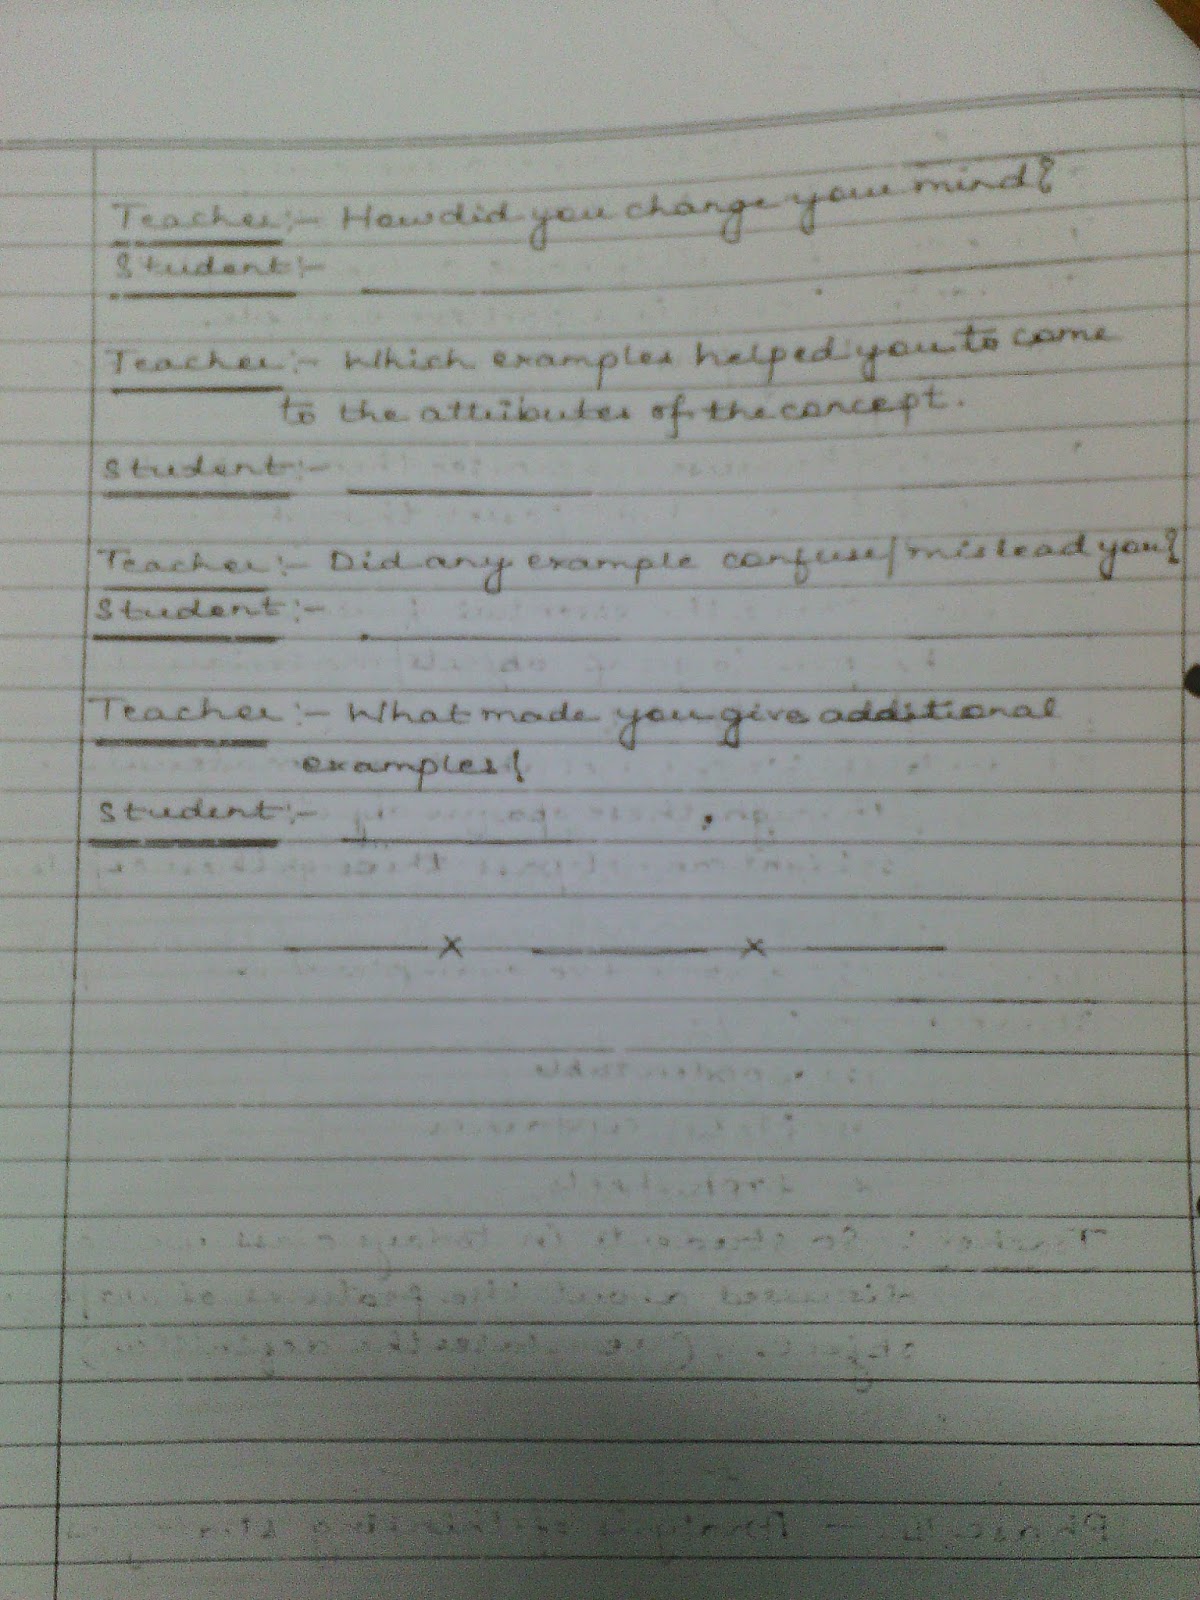 Teacher:- How did you change your mind?
Student:- ________
Teacher:- Which examples helped you to come
to the attributes of the concept.
Student:- ________
Teacher:- Did any example confuse/mislead you?
Student:- ________
Teacher:- What made you give additional
examples?
Student:- ________
____x ____x ____